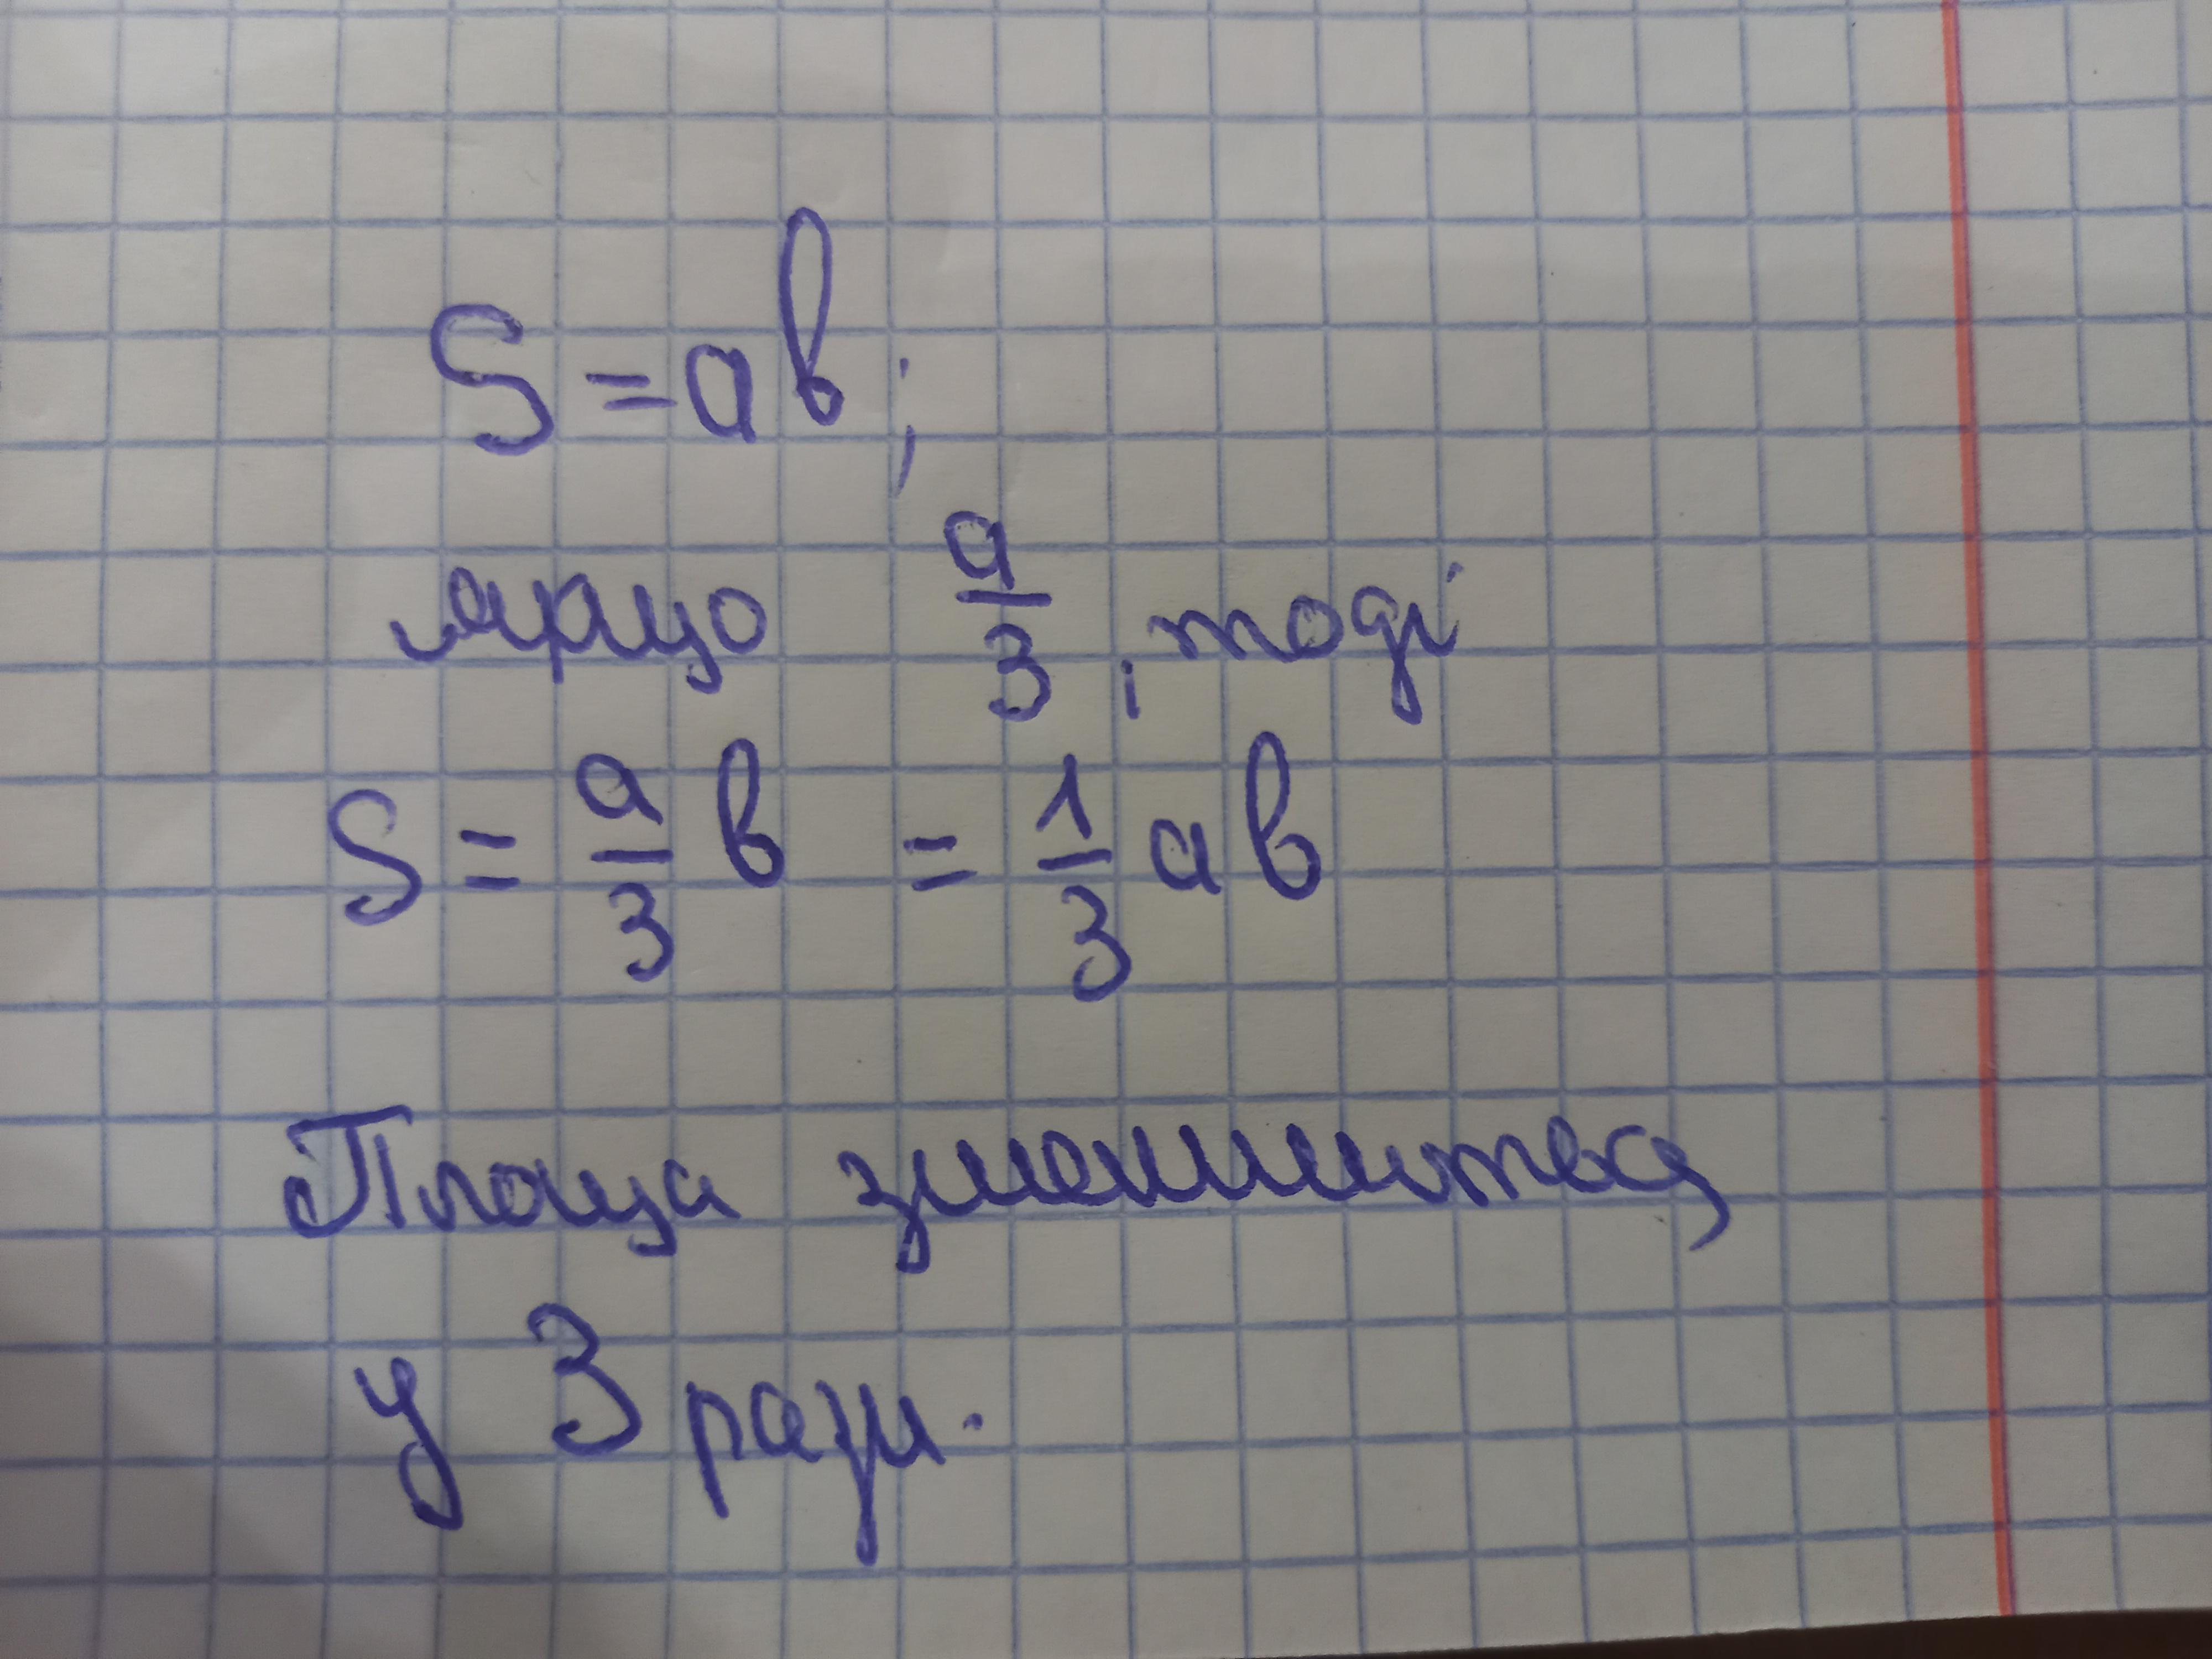 S = ab;
якщо a/3, тоді
S = a/3 b = 1/3 ab
Площа зменшиться
у 3 рази.